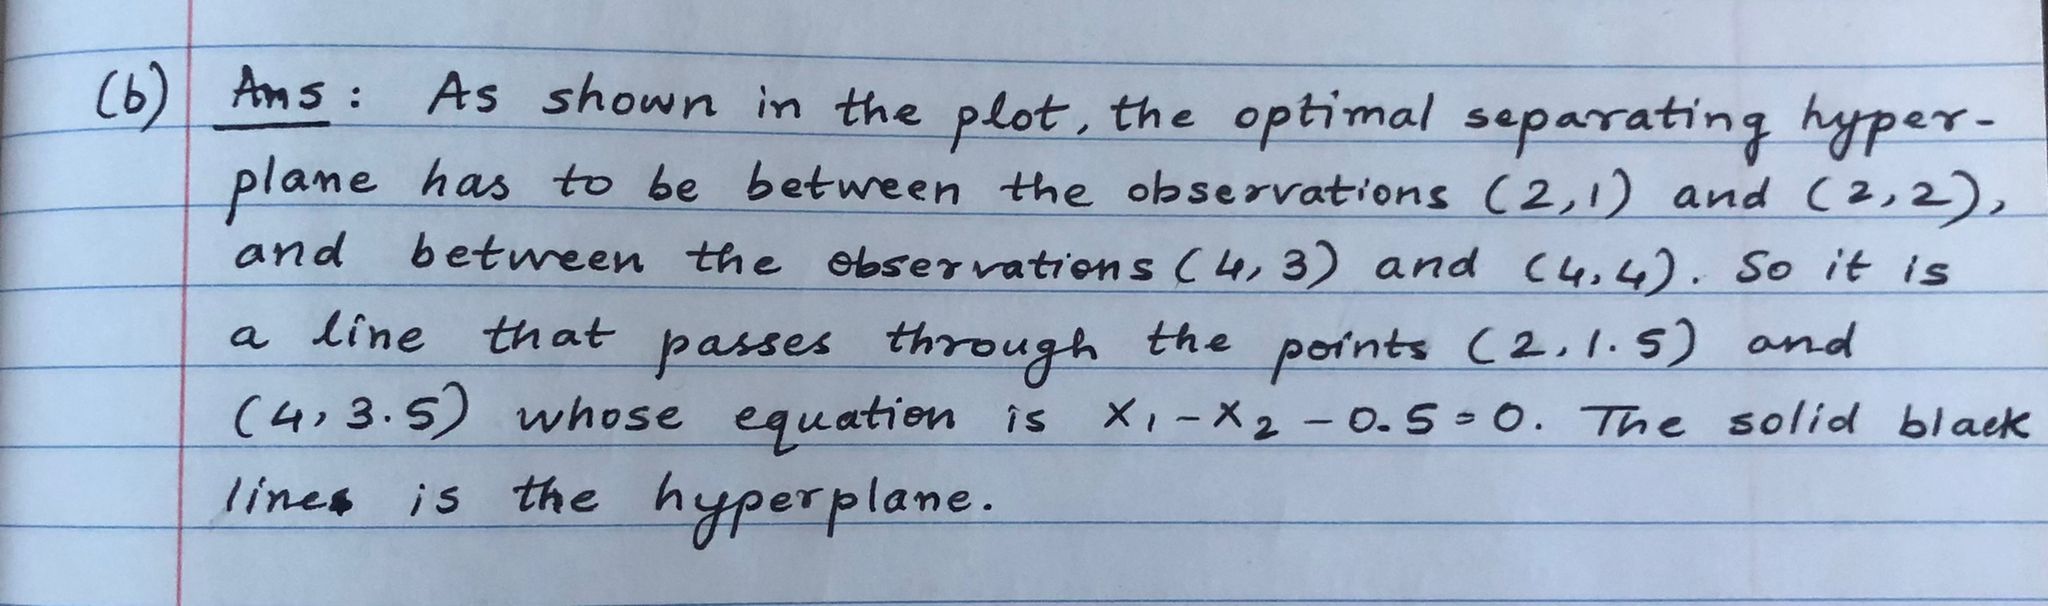 (b) Ans : As shown in the plot, the optimal separating hyper-
plane has to be between the observations (2,1) and (2,2),
and between the observations (4,3) and (4,4). So it is
a line that passes through the points (2,1.5) and
(4,3.5) whose equation is X₁-X₂-0.5=0. The solid black
lines is the hyperplane.